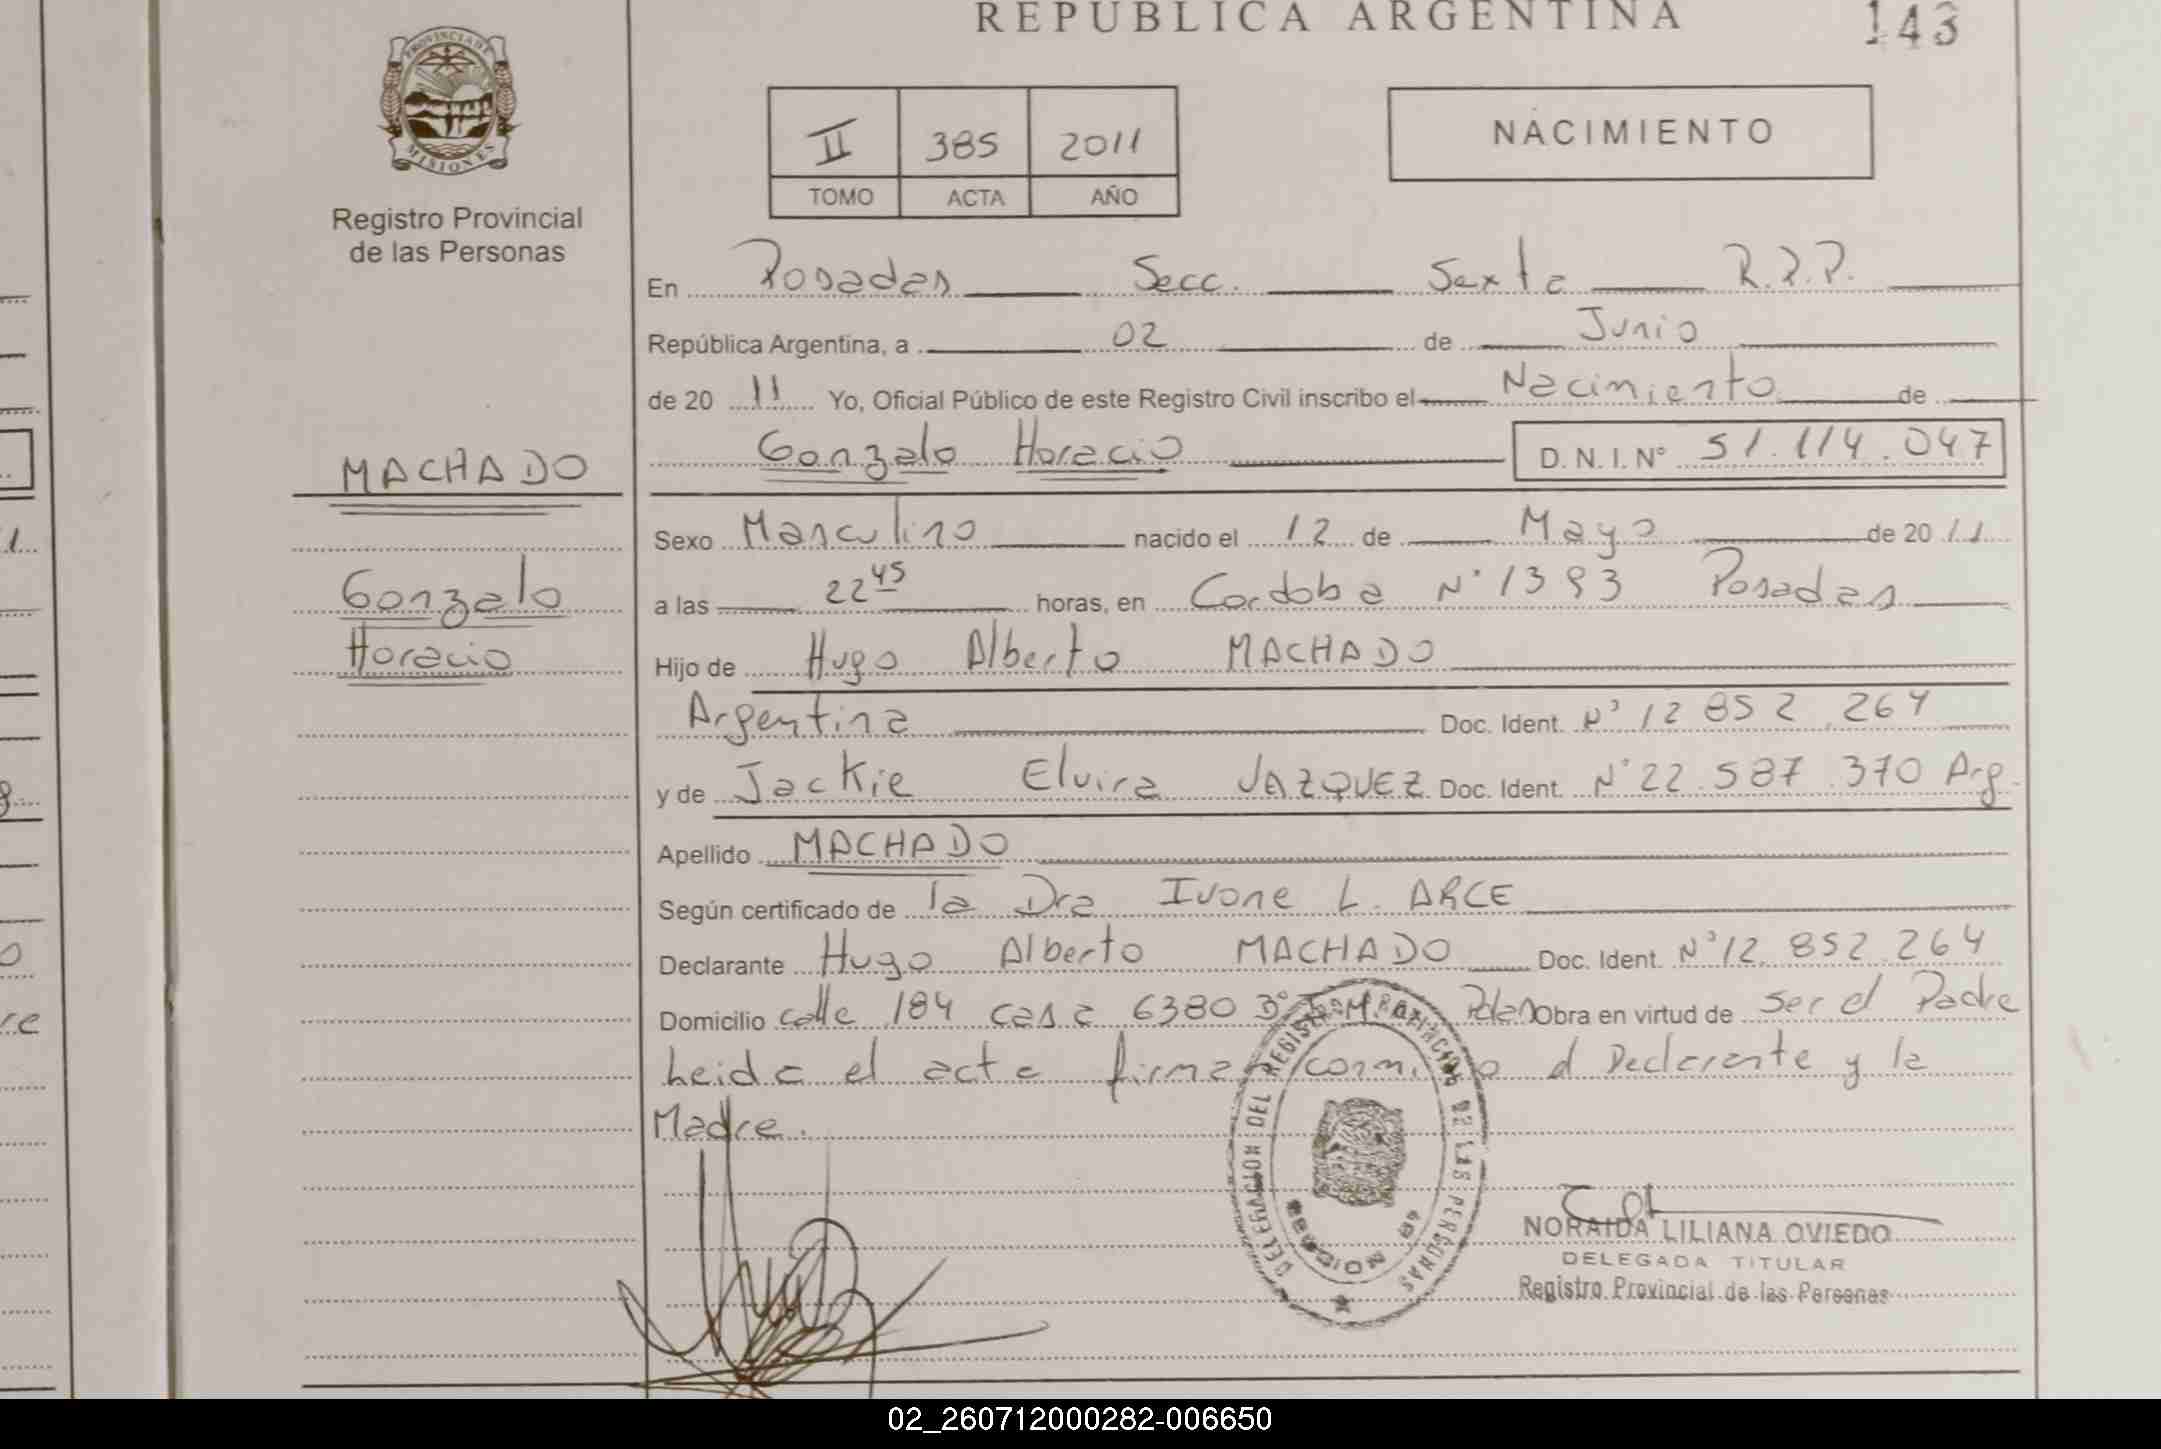 REPUBLICA ARGENTINA
143
PROVINCIA DE
MISIONES
Registro Provincial
de las Personas
II 385 2011
TOMO ACTA AÑO
NACIMIENTO
En Posadas Secc. Sexta R.P.P.
República Argentina, a 02 de Junio
de 20 11 Yo, Oficial Público de este Registro Civil inscribo el Nacimiento de
Gonzalo Horacio D.N.I. Nº 51.114.047
MACHADO
Gonzalo
Horacio
Sexo Masculino nacido el 12 de Mayo de 20 11
a las 22 45 horas, en Cordoba Nº 1393 Posadas
Hijo de Hugo Alberto MACHADO
Argentina Doc. Ident. Nº 12 852.264
y de Jackie Elvira VAZQUEZ Doc. Ident. Nº 22.587.370 Arg.
Apellido MACHADO
Según certificado de la Dra Ivone L. ARCE
Declarante Hugo Alberto MACHADO Doc. Ident. Nº 12.852.264
Domicilio calle 184 casa 6380 Obra en virtud de ser el Padre
Leida el acta firman el Declarante y la
Madre.
DELEGACION DEL REGISTRO PROVINCIAL DE LAS PERSONAS
NORAIDA LILIANA OVIEDO
DELEGADA TITULAR
Registro Provincial de las Personas
02_260712000282-006650